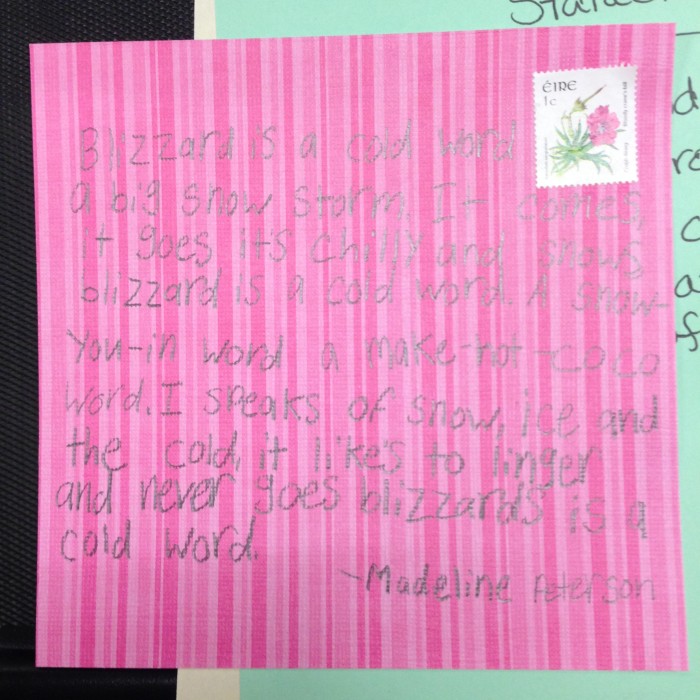 Blizzard is a cold word
a big snow storm. It comes,
it goes it's chilly and snows
blizzard is a cold word. A snow
You-in word a make-hot-coco
word. I speaks of snow, ice and
the cold, it like's to linger
and never goes blizzards is a
cold word.
-Madeline Peterson
ÉIRE
1c